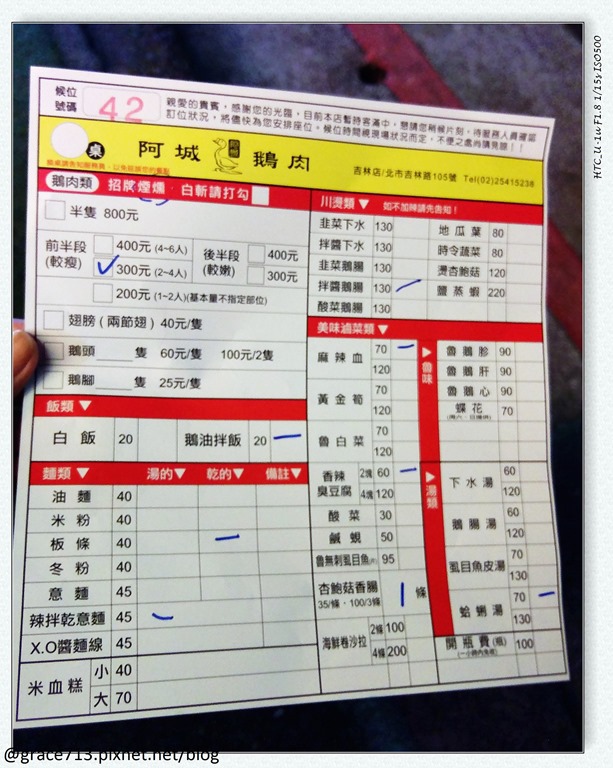 候位
號碼 42
親愛的貴賓，感謝您的光臨，目前本店暫時客滿中，懇請您稍候片刻，待服務人員確認
訂位狀況，將儘快為您安排座位。候位時間視現場狀況而定，不便之處尚請見諒！！
桌 阿城鵝肉 吉林店/北市吉林路105號 Tel(02)25415238
鵝肉類 招牌煙燻．白斬請打勾
半隻 800元
前半段
(較瘦)
400元 (4~6人)
300元 (2~4人)
後半段
(較嫩)
400元
300元
200元 (1~2人)(基本量不指定部位)
翅膀(兩節翅) 40元/隻
鵝頭 隻 60元/隻 100元/2隻
鵝腳 隻 25元/隻
飯類▼
白飯 20 鵝油拌飯 20
麵類▼ 湯的▼ 乾的▼ 備註▼
油麵 40
米粉 40
板條 40
冬粉 40
意麵 45
辣拌乾意麵 45
X.O醬麵線 45
米血糕 小 40
大 70
川燙類▼ 如不加辣請先告知！
韭菜下水 130 地瓜葉 80
拌醬下水 130 時令蔬菜 80
韭菜鵝腸 130 燙杏鮑菇 120
拌醬鵝腸 130 鹽蒸蝦 220
酸菜鵝腸 130
美味滷菜類▼
麻辣血 70
120
黃金筍 70
120
魯白菜 70
120
香辣
臭豆腐 2塊 60
4塊 120
酸菜 30
鹹蜆 50
魯無刺虱目魚 95
杏鮑菇香腸 1條
35/條．100/3條
海鮮卷沙拉 2條 100
4條 200
▶魯味
魯鵝胗 90
魯鵝肝 90
魯鵝心 90
蝶花 70
▶湯類
下水湯 60
120
鵝腸湯 60
120
虱目魚皮湯 70
130
蛤蜊湯 70
130
開瓶費(瓶) 100
HTC_U-1w F1.8 1/15s ISO500
@grace713.pixnet.net/blog